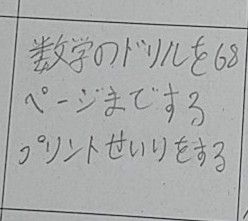 数学のドリルを68
ページまでする
プリントせいりをする